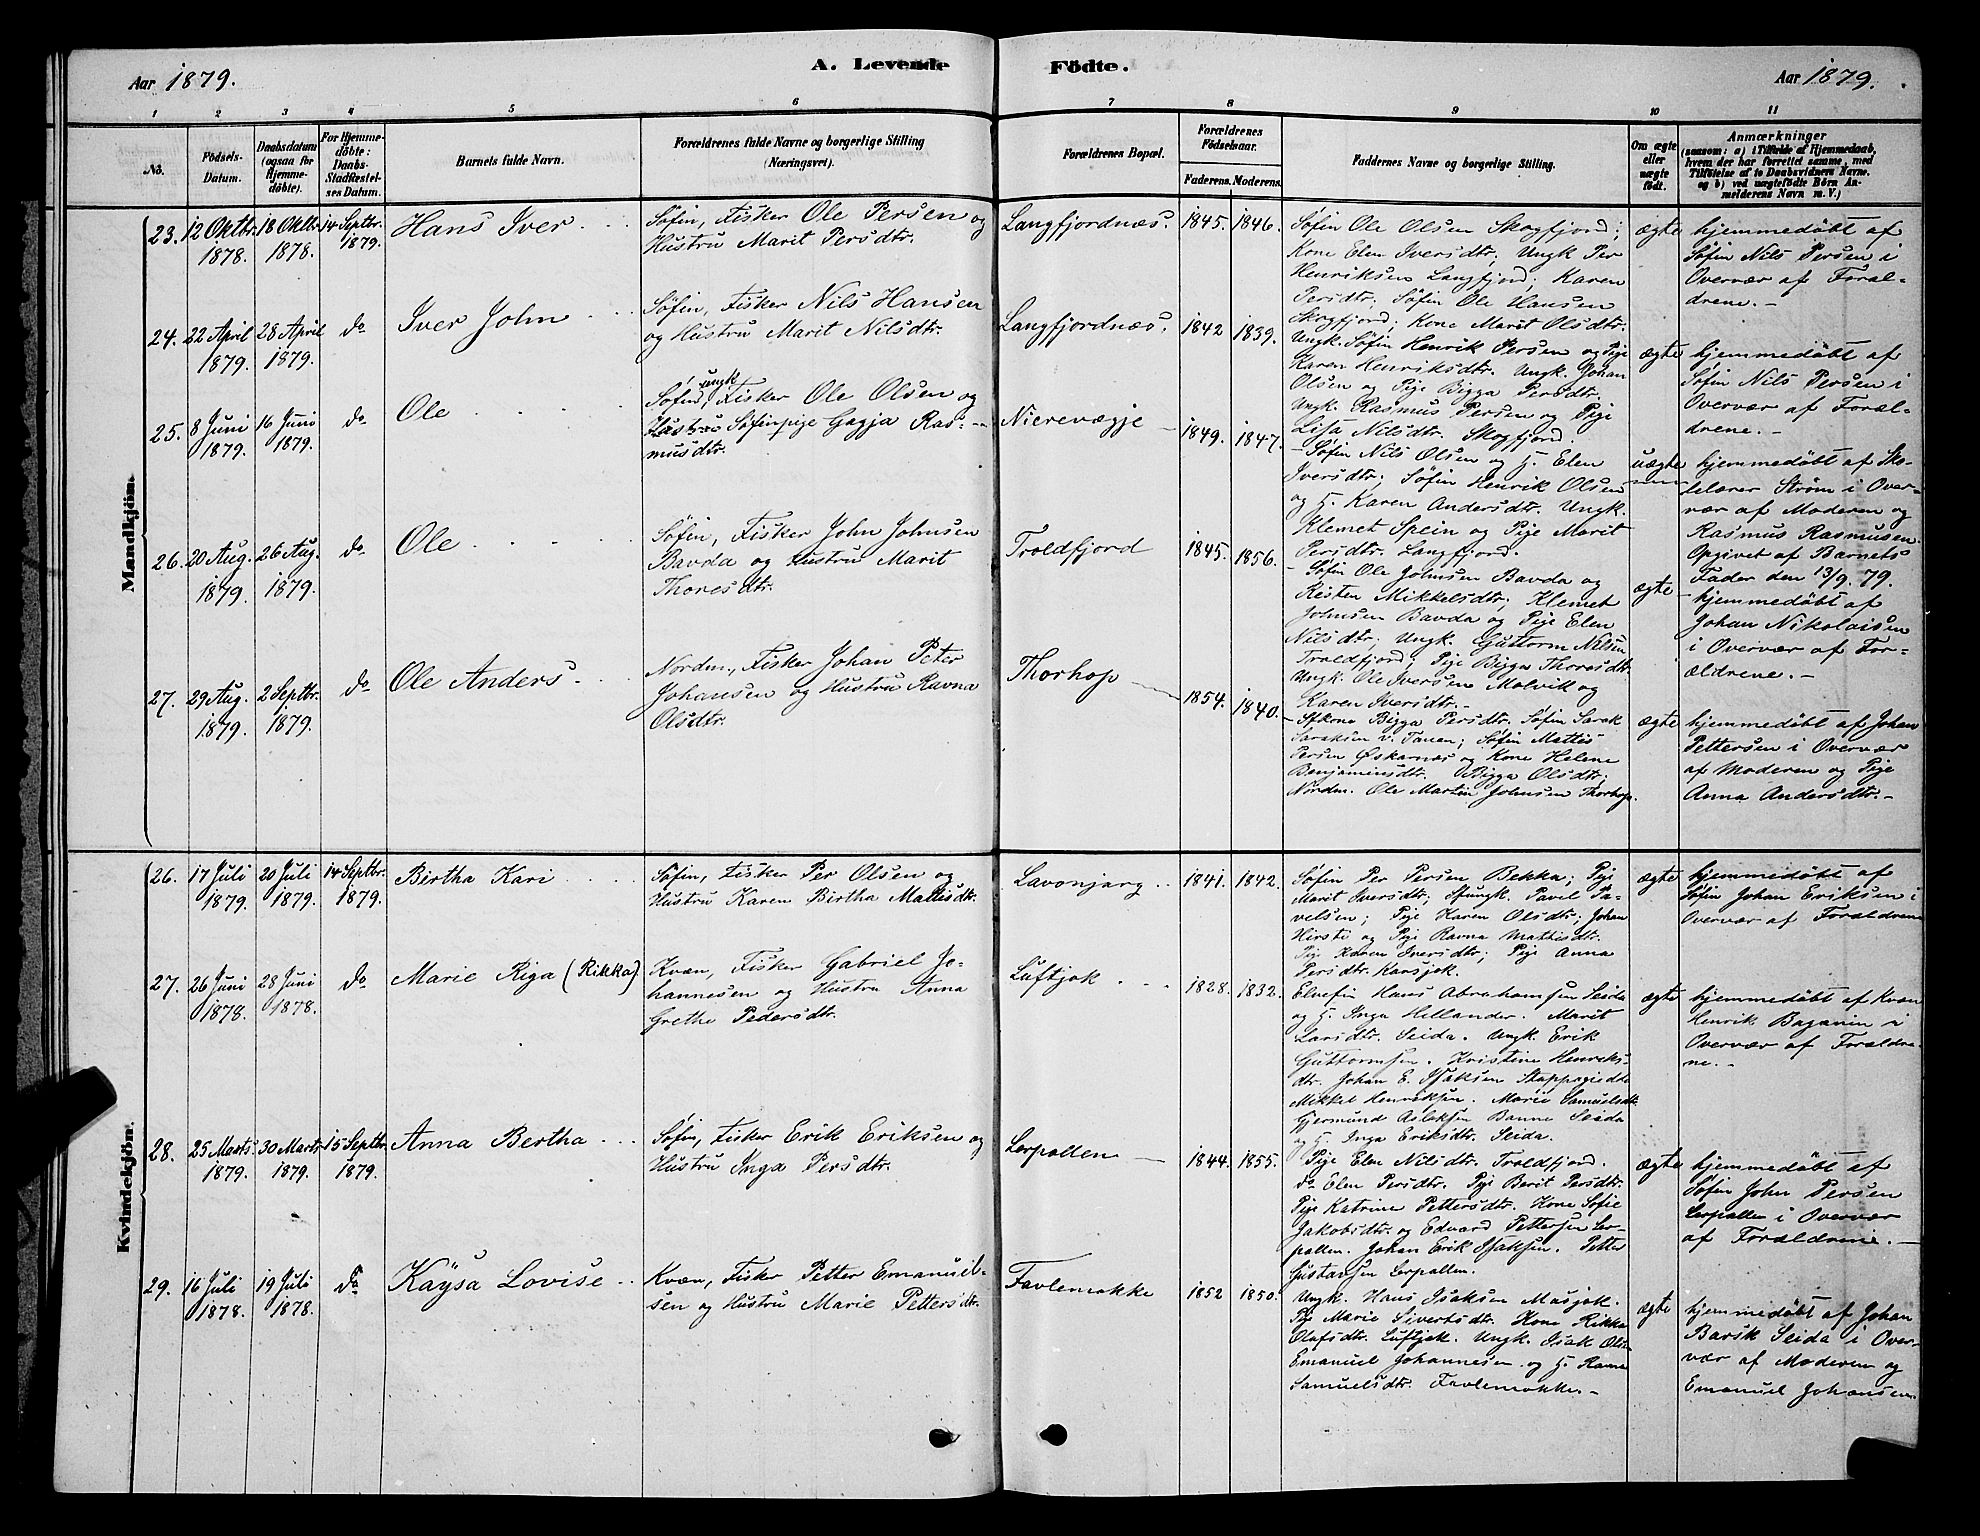 Aar 1879.
A. Levende
Födte.
Aar 1879.
1 2 3 4 5 6 7 8 9 10 11
No.
Födsels-
Datum.
Daabsdatum
(ogsaa for
Hjemme-
döbte).
For Hjemme-
döbte:
Daabs-
Stadfæstel-
ses Datum.
Barnets fulde Navn.
Forældrenes fulde Navne og borgerlige Stilling
(Næringsvei).
Forældrenes Bopæl.
Forældrenes
Födselsaar.
Faderens. Moderens.
Faddernes Navne og borgerlige Stilling.
Om ægte
eller
uægte
födt.
Anmærkninger
(saasom: a) i Tilfælde af Hjemmedaab,
hvem der har forrettet samme, med
Tilföielse af to Daabsvidners Navne.
og b) ved uægtefödte Börn An-
melderens Navn m. V.)
Mandkjön.
23. 12 Oktbr.
1878.
18 Oktbr.
1878.
14 Septbr.
1879.
Hans Iver
Søfin, Fisker Ole Persen og
Hustru Marit Persdtr.
Langfjordnæs.
1845. 1846.
Søfin Ole Olsen Skogfjord;
Kone Elen Iversdtr; Ungk Per
Henriksen Langfjord; Karen
Persdtr. Søfin Ole Hansen
Skogfjord; Kone Marit Olsdtr.
ægte
hjemmedøbt af
Søfin Nils Persen i
Overvær af Foræl-
drene. -
24. 22 April
1879.
28 April
1879.
do
Iver John
Søfin, Fisker Nils Hansen
og Hustru Marit Nilsdtr.
Langfjordnæs.
1842 1839.
Ungk. Søfin Henrik Persen og Pige
Karen Henriksdtr. Ungk. Johan
Olsen og Pige Bigga Persdtr.
Ungk. Rasmus Persen og Pige
Lisa Nilsdtr. Skogfjord.
ægte
hjemmedøbt af
Søfin Nils Persen i
Overvær af Foræl-
drene. -
25. 8 Juni
1879.
16 Juni
1879.
do
Ole
ungk
Søfin, Fisker Ole Olsen og
Hustru Søfinpige Gagja Ras-
musdtr.
Nierevægje
1849. 1847.
- Søfin Nils Olsen og H. Elen
Iversdtr; Søfin Henrik Olsen
og H. Karen Andersdtr. Ungk.
Klemet Spein og Pige Marit
Persdtr. Langfjord.
uægte
hjemmedøbt af Sko-
lelærer Strøm i Over-
vær af Moderen og
Rasmus Rasmusen.
Opgivet af Barnets
Fader den 13/9. 79.
26. 20 Aug.
1879.
26 Aug.
1879.
do
Ole
Søfin, Fisker John Johnsen
Bavda og Hustru Marit
Thoresdtr.
Troldfjord
1845. 1856.
- Søfin Ole Johnsen Bavda og
Kristen Mikkelsdtr; Klemet
Johnsen Bavda og Pige Elen
Nilsdtr; Ungk. Guttorm Nilsen
Troldfjord; Pige Bigga Thoresdtr.
Ungk. Ole Iversen Molvik og
Karen Iversdtr.
ægte
hjemmedøbt af
Johan Nikolaisen
i Overvær af For-
ældrene. -
27. 29 Aug.
1879.
2 Septbr.
1879.
do
Ole Anders
Nordm., Fisker Johan Peter
Johansen og Hustru Ravna
Olsdtr.
Thorhop
1854. 1840.
- Sfkone Bigga Persdtr. Søfin Sarak
Saraksen v. Tanen; Søfin Mattis
Persen Øskarnæs og Kone Helene
Benjaminsdtr. Bigga Olsdtr;
Nordm. Ole Martin Johnsen Thorhop.
ægte
hjemmedøbt af Johan
Pettersen i Overvær
af Moderen og Pige
Anna Andersdtr. -
Kvindekjön.
26. 17 Juli
1879.
20 Juli
1879.
14 Septbr.
1879.
Birtha Kari
Søfin, Fisker Per Olsen og
Hustru Karen Birtha Mattisdtr.
Lavonjarg
1841. 1842.
Søfin Per Persen Bekka; Pige
Marit Iversdtr; Sfungk. Pavel Pa-
velsen; Pige Karen Olsdtr; Johan
Hirsti og Pige Ravna Mathisdtr.
Pige Karen Iversdtr; Pige Anna
Persdtr. Karsjok.
ægte
hjemmedøbt af
Søfin Johan Eriksen i
Overvær af Forældrene
27. 26 Juni
1878.
28 Juni
1878.
do
Marie Riga (Rikka)
Kvæn, Fisker Gabriel Jo-
hannesen og Hustru Anna
Grethe Pedersdtr.
Luftjok
1828. 1832.
Elvefin Hans Abrahamsen Seida
og H. Inga Hellander. Marit
Larsdtr. Seida. Ungk. Erik
Guttormsen. Kristine Henriks-
dtr. Johan E. Isaksen Stappogiedde
Mikkel Henriksen. Marie Samuelsdtr.
Gjermund Aslaksen Banne Seida
og H. Inga Eriksdtr. Seida.
ægte
hjemmedøbt af Kvæn
Henrik Baganin i
Overvær af Forældre-
ne. -
28. 25 Marts
1879.
30 Marts
1879.
15 Septbr.
1879.
Anna Bertha
Søfin, Fisker Erik Eriksen og
Hustru Inga Persdtr.
Lerpollen
1844. 1855.
Pige Elen Nilsdtr. Troldfjord.
do Elen Persdtr. Pige Berit Persdtr.
Pige Katrine Pettersdtr. Kone Sofie
Jakobsdtr. og Edvard Pettersen Ler-
pollen. Johan Erik Isaksen. Petter
Gustavsen Lerpollen.
ægte
hjemmedøbt af
Søfin John Persen
Lerpollen i Overvær
af Forældrene. -
29. 16 Juli
1878.
19 Juli
1878.
do
Kaysa Lovise
Kvæn, Fisker Petter Emanuel-
sen og Hustru Marie Pettersdtr.
Favlemokke
1852 1850.
Ungk. Hans Isaksen Masjok.
Pige Marie Sivertsdtr. Kone Rikka
Olafsdtr. Luftjok. Ungk. Isak Olsen
Emanuel Johannesen og H. Ravna
Samuelsdtr. Favlemokke. -
ægte
hjemmedøbt af Johan
Barsk Seida i Over-
vær af Moderen og
Emanuel Johansen.